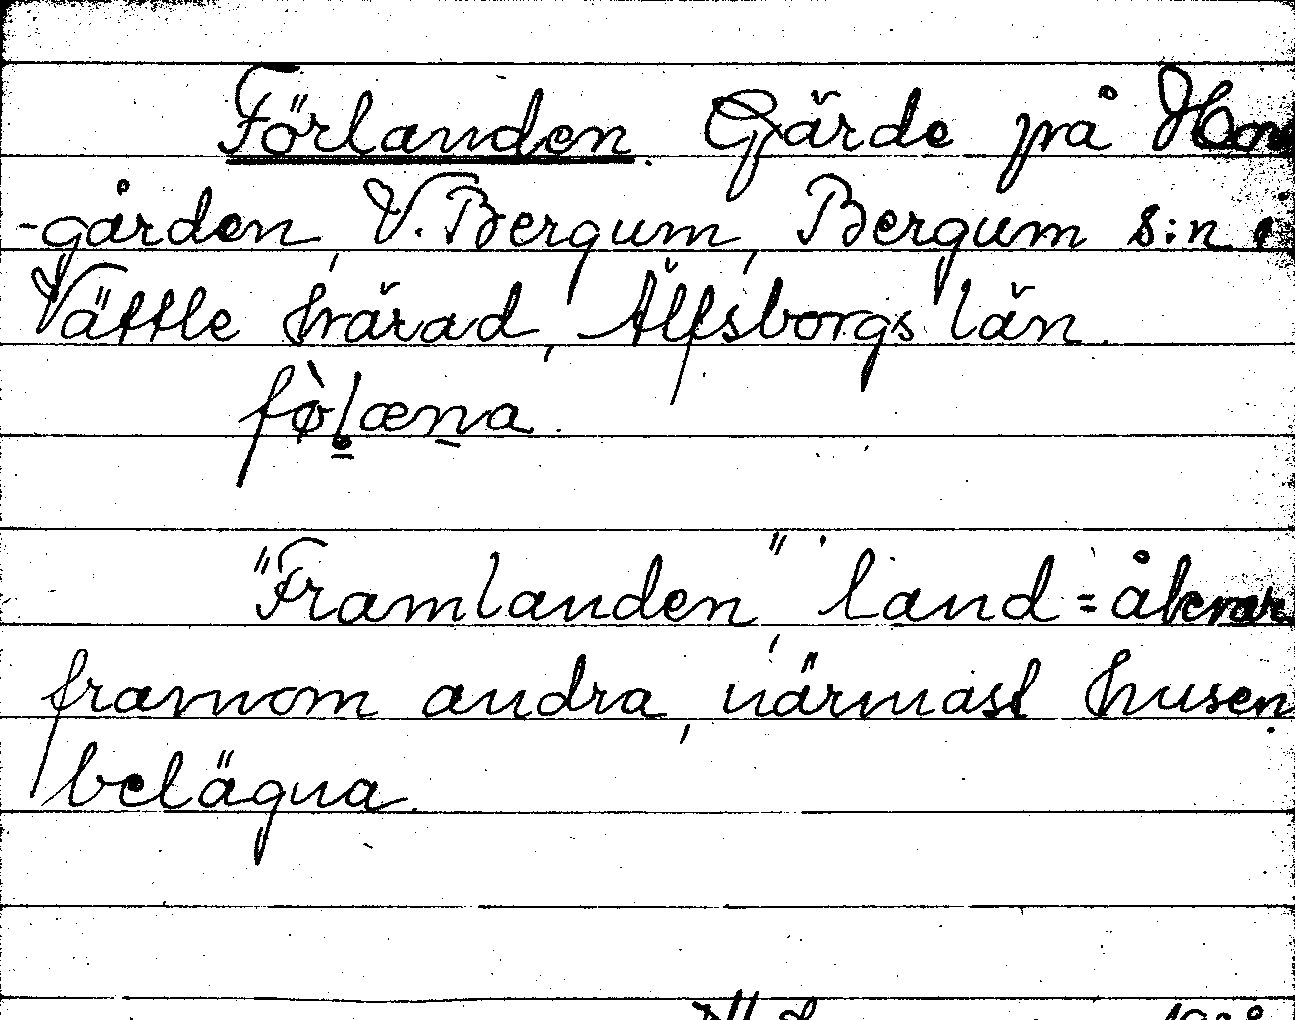 Förlanden. Gärde på
-gården, V. Bergum, Bergum s:n i
Vättle härad, Älfsborgs län.
fø̀l̥æna.
"Framlanden", land = åkrar
framom andra, närmast husen
belägna.